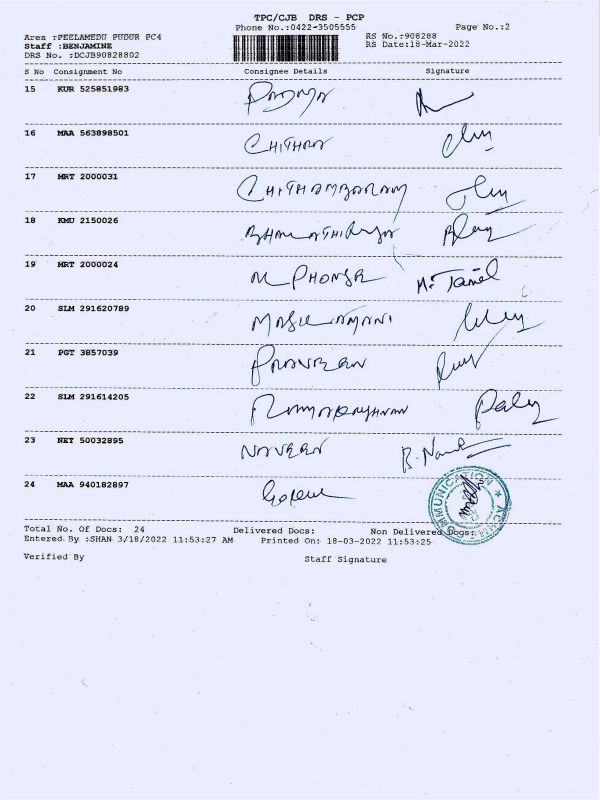 TPC/CJB DRS - PCP
Phone No.:0422-3505555 Page No.:2
Area :PEELAMEDU PUDUR PC4 RS No.:908288
Staff :BENJAMINE RS Date:18-Mar-2022
DRS No. :DCJB90828802
S No Consignment No Consignee Details Signature
15 KUR 525851983 PADMA
16 MAA 563898501 CHITHRA
17 MRT 2000031 CHITHAMBARAM
18 KMU 2150026
19 MRT 2000024 M. Tamil
20 SLM 291620789 MASILAMANI
21 PGT 3857039 PRAVEEN
22 SLM 291614205
23 NEY 50032895 NAVEEN
24 MAA 940182897
Total No. Of Docs: 24 Delivered Docs: Non Delivered Docs:
Entered By :SHAN 3/18/2022 11:53:27 AM Printed On: 18-03-2022 11:53:25
Verified By Staff Signature